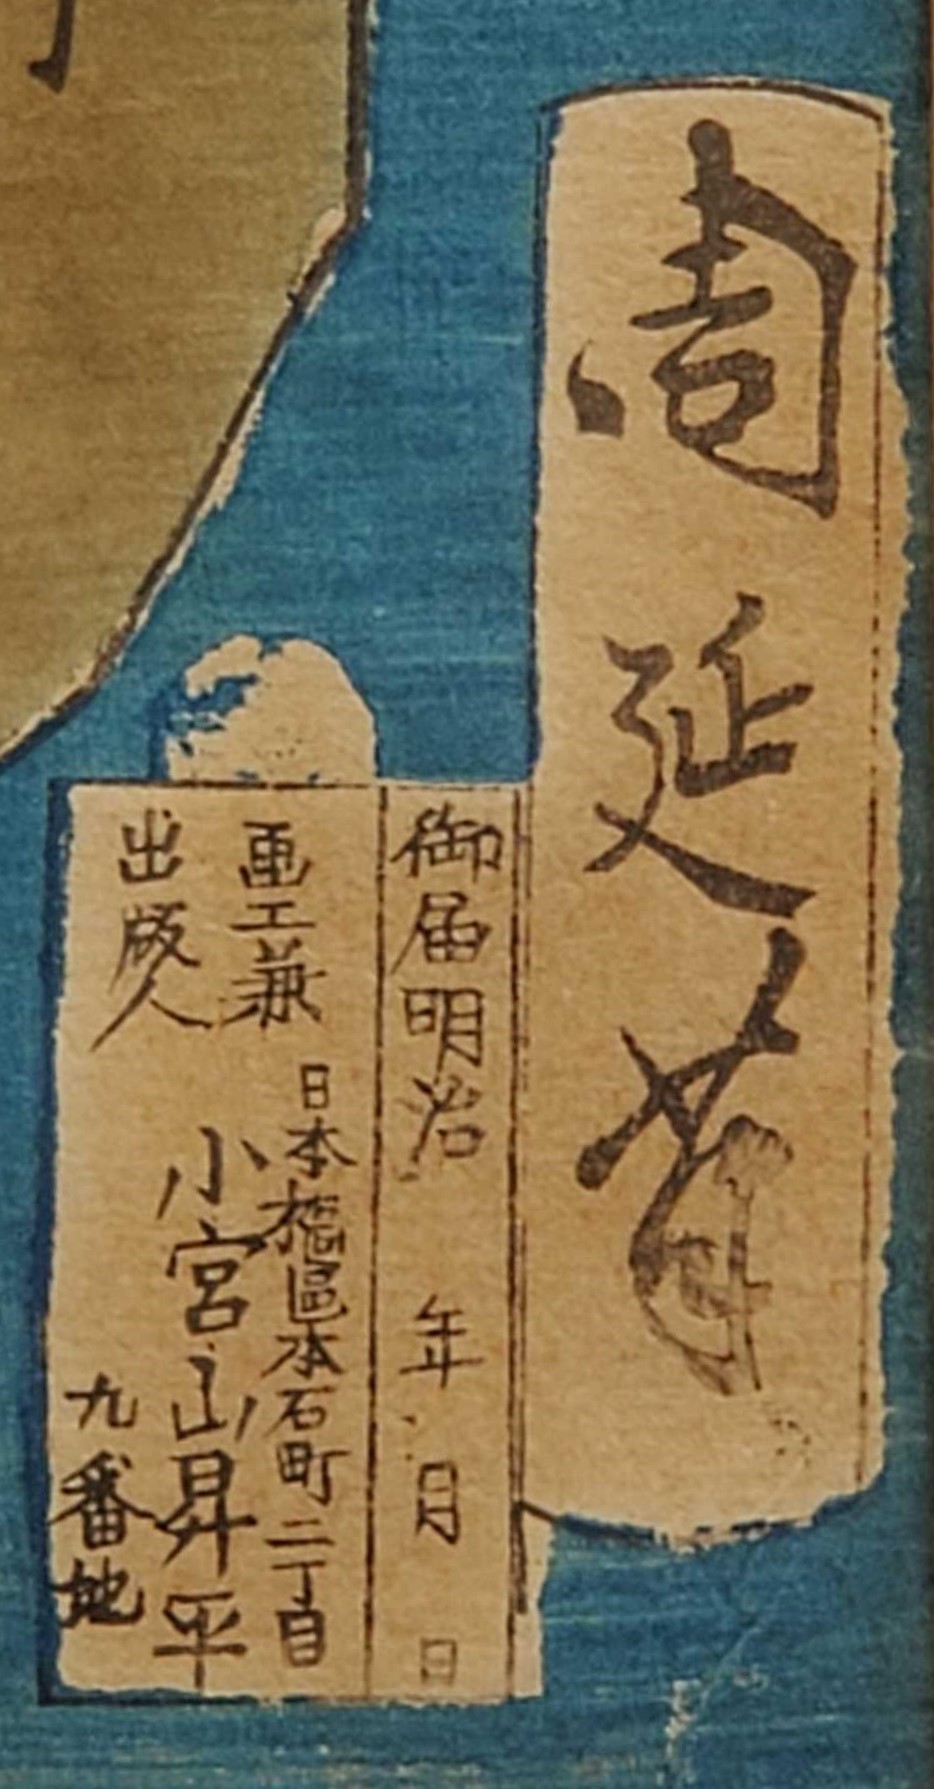 周延筆
御届明治 年 月 日
画工兼
出版人
日本橋區本石町二丁目
九番地
小宮山昇平